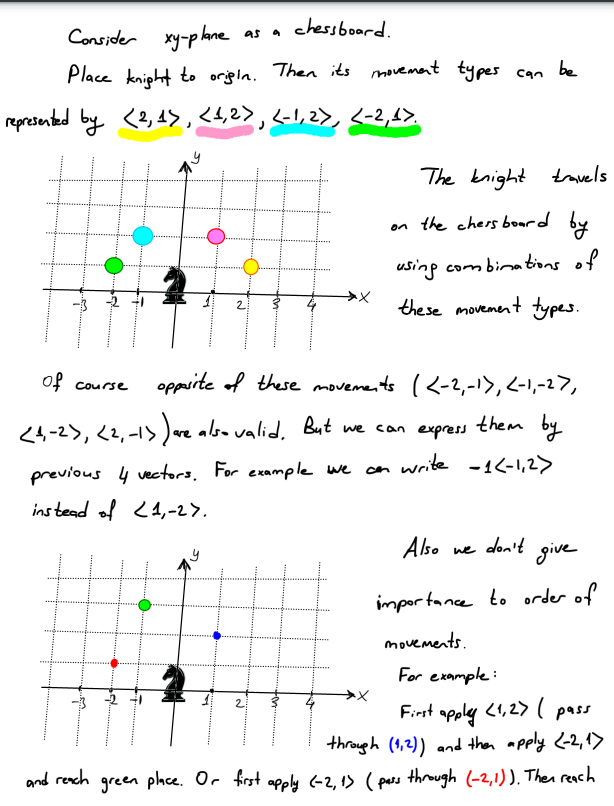 Consider xy-plane as a chessboard.
Place knight to origin. Then its movement types can be
represented by <2,1>, <1,2>, <-1,2>, <-2,1>.
y
The knight travels
on the chessboard by
using combinations of
these movement types.
-3 -2 -1 1 2 3 4 x
Of course opposite of these movements (<-2,-1>, <-1,-2>,
<1,-2>, <2,-1>) are also valid. But we can express them by
previous 4 vectors. For example we can write -1<-1,2>
instead of <1,-2>.
y
Also we don't give
importance to order of
movements.
For example:
-3 -2 -1 1 2 3 4 x
First apply <1,2> (pass
through (1,2)) and then apply <-2,1>
and reach green place. Or first apply <-2,1> (pass through (-2,1)). Then reach